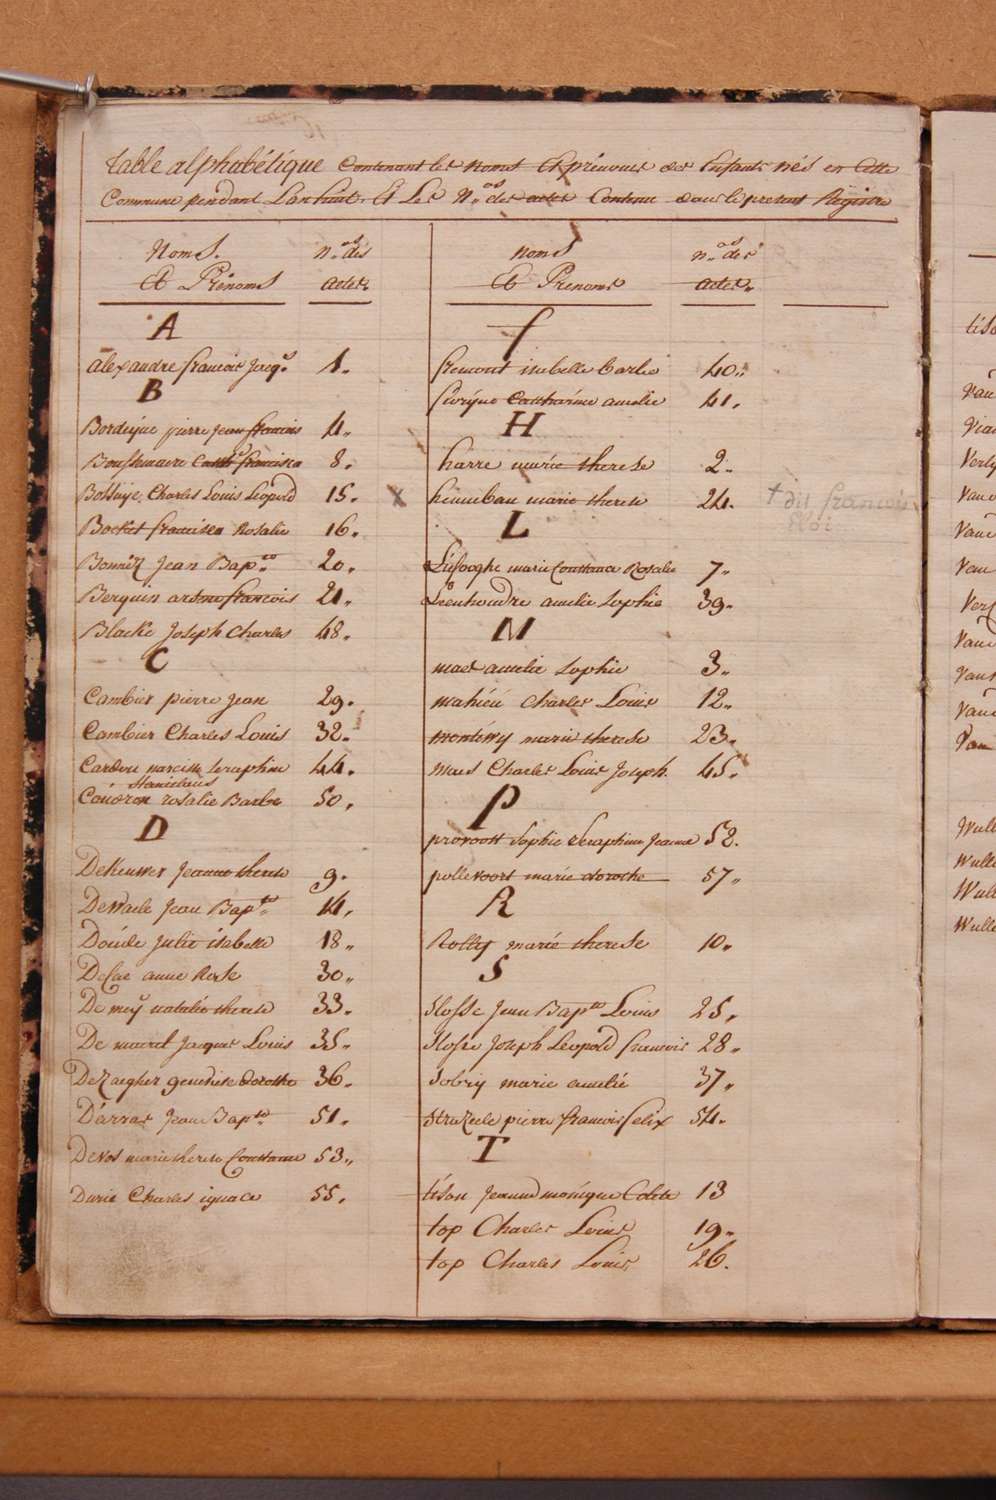 Table alphabétique Contenant les noms Et prénoms des Enfants nés en Cette
Commune pendant L'an huit. Et Les N.os des actes Contenu dans le present Registre
Noms. n.os des
Et Prénoms actes.
A
alexandre francois Jacq.s 1.
B
Bordeÿne pierre Jean francois 4.
Boussemaere Cath.e francisca 8.
Bossuÿe Charles Louis Leopold 15.
Bocket francisca Rosalie 16.
Bonnez Jean Bap.te 20.
Berquin antoine francois 21.
Blacke Joseph Charles 48.
C
Cambier pierre Jean 29.
Cambier Charles Louis 32.
Cardon narcisse Seraphine 44.
Stanislaus
Coudron rosalie Barbe 50.
D
DeKeuwer Jeanne therese 9.
Dewaele Jean Bap.te 14.
Doude Julie isabelle 18.
Delae anne Rose 30.
De meÿ natalie therese 33.
De maeret Jacques Louis 35.
DeZaegher genevieve dorothe 36.
Darras Jean Bap.te 51.
Devos marie therese Constance 53.
Durie Charles ignace 55.
noms n.os des
Et Prenoms actes.
f
fremont isabelle Barbe 40.
Catharine amelie 41.
H
harre marie therese 2.
x henneban marie therese 24. † dit francois
Eloi
L
Lefooghe marie Constance Rosalie 7.
Leenhoudre amelie Sophie 39.
M
maes amelie Sophie 3.
mahieu Charles Louis 12.
marie therese 23.
maes Charles Louis Joseph. 45.
P
provoost Sophie Seraphine Jeanne 52.
pollevoort marie dorothe 57.
R
Rolly marie therese 10.
S
Slosse Jean Bap.te Louis 25.
Slosse Joseph Leopold francois 28.
Sobry marie amelie 37.
StraZeele pierre francois felix 54.
T
tison Jeanne monique Colete 13
top Charles Louis 19.
top Charles Louis 26.